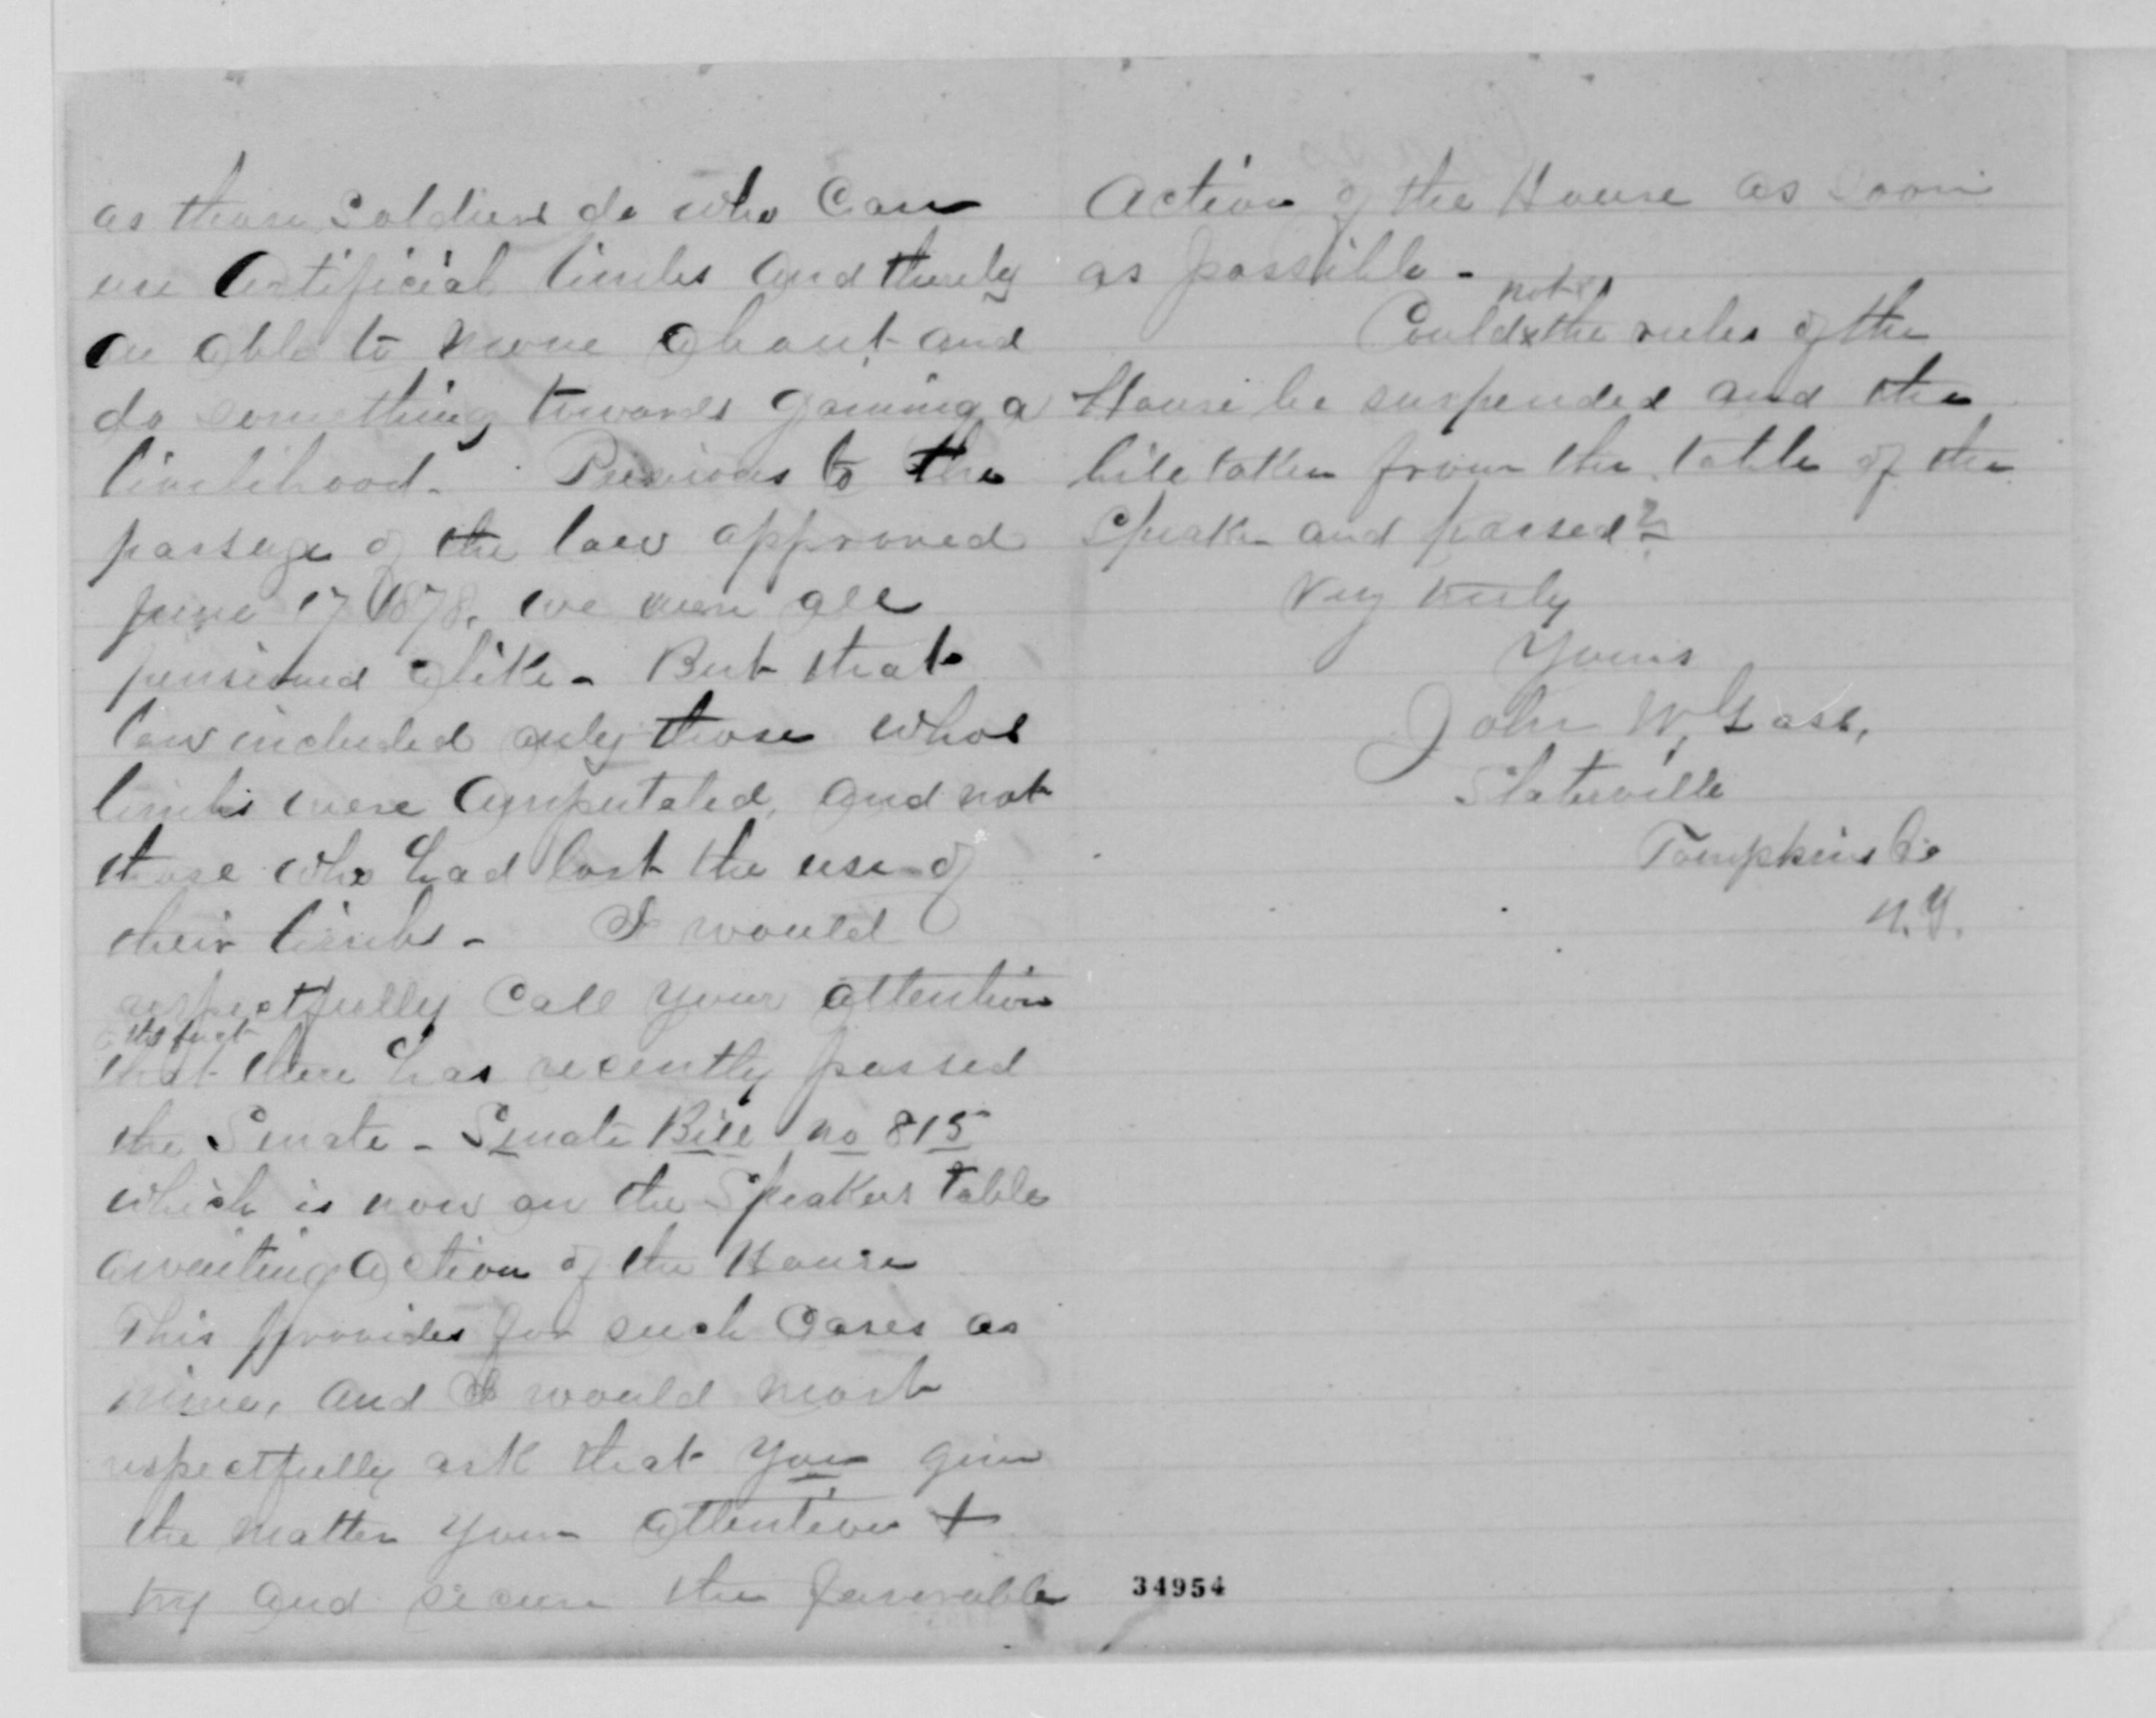 as those Soldiers do who Can
use Artificial limbs and thereby
are able to move about and
do something towards gaining a
livelihood. Previous to the
passage of the law approved
June 17 1878, we were all
pensioned alike - But that
law included only those whos
limbs were Amputated, and not
those who had lost the use of
their limbs - I would
respectfully Call your attention
to the fact
that there has recently passed
the Senate - Senate Bill no 815
which is now on the Speakers table
awaiting action of the House
This provides for such Cases as
mine, and I would most
respectfully ask that you give
the matter your attention +
try and secure the favorable
Action of the House as soon
as possible -
not
Could the rules of the
House be suspended and the
bill taken from the table of the
Speaker and passed?
Very truly
Yours
John W.
Slaterville
Tompkins Co
N.Y.
34954